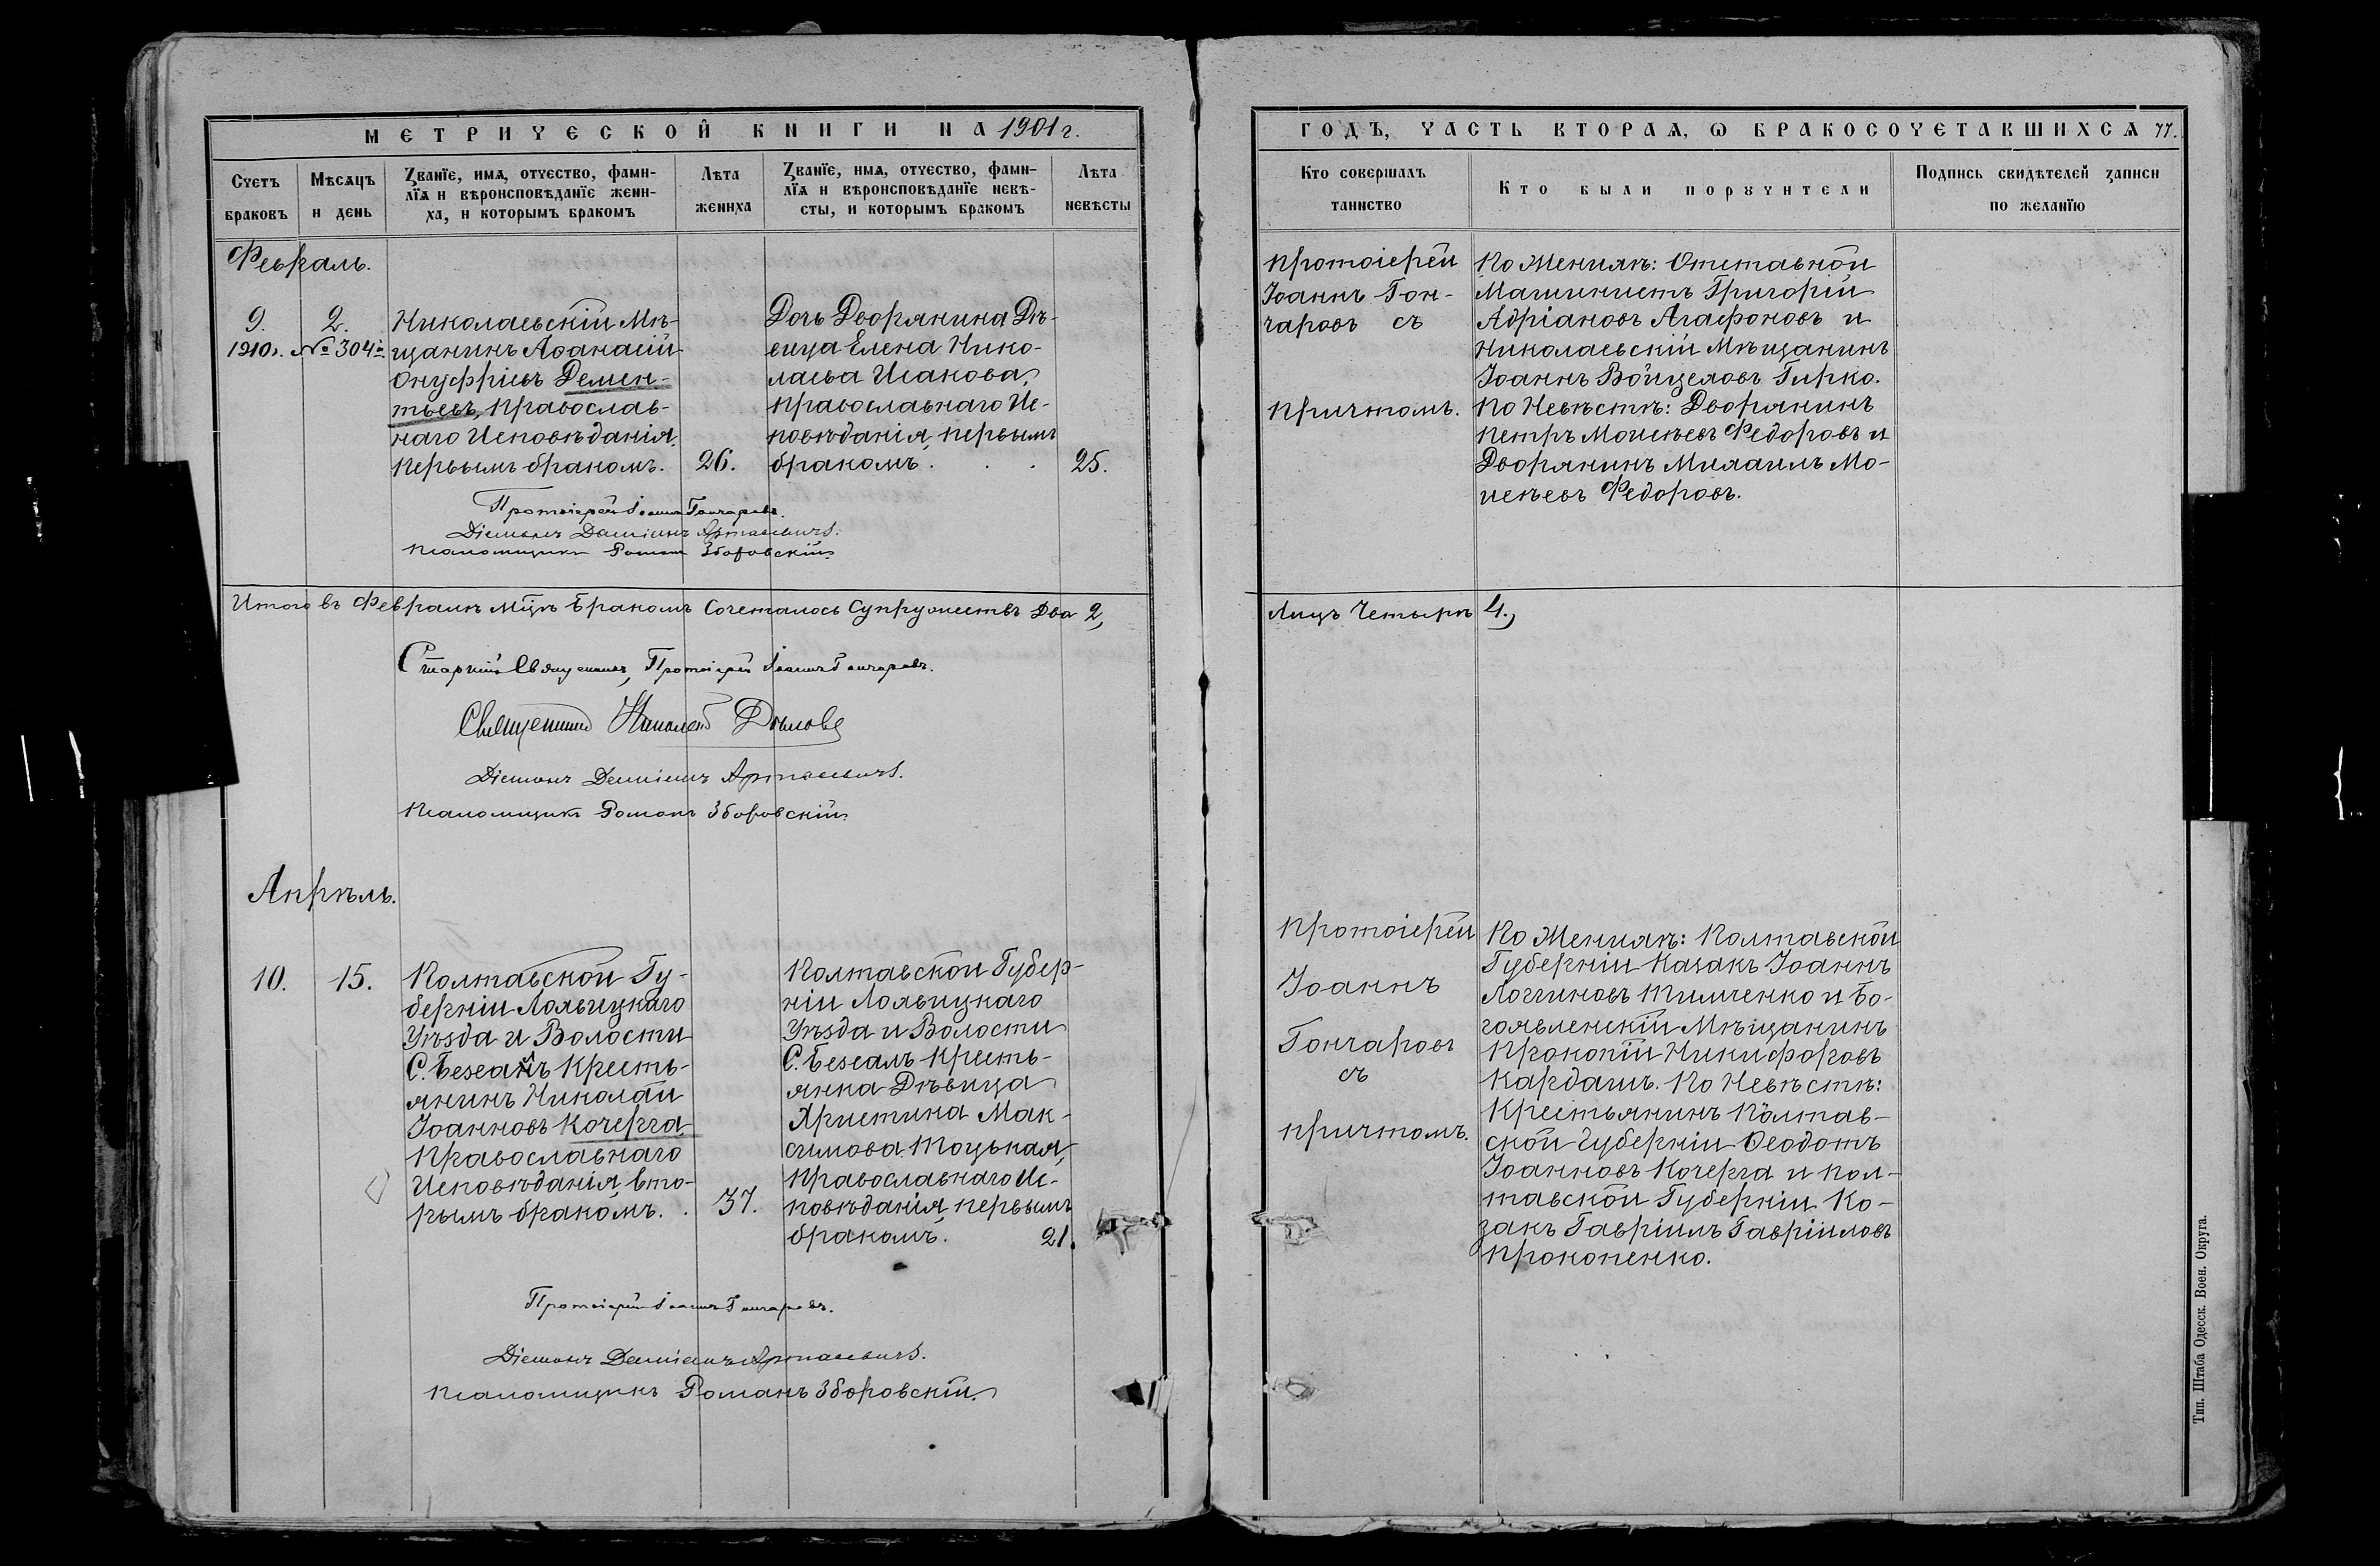 МЕТРИЧЕСКОЙ КНИГИ НА 1901 г.
Счетъ браковъ
Мѣсяцъ и день
Званїе, имя, отчество, фамилїя и вѣроисповѣданїе жениха, и которымъ бракомъ
Лѣта жениха
Званїе, имя, отчество, фамилїя и вѣроисповѣданїе невѣсты, и которымъ бракомъ
Лѣта невѣсты
Февраль.
9.
1910г. № 304
2.
Николаевскій Мѣ-
щанинъ Аѳанасій
Онуфріевъ Демен-
тьевъ, Православ-
наго Исповѣданія,
первымъ бракомъ.
26.
Дочь Дворянина Дѣ-
вица Елена Нико-
лаева Исакова,
Православнаго Ис-
повѣданія, первымъ
бракомъ.
25.
Протоіерей Іоаннъ Гончаровъ.
Діаконъ Даміанъ
Псаломщикъ Романъ Зборовскій
Итого въ Февралѣ Мцѣ Бракомъ Сочеталось Супружествъ Два 2,
Старшій Священникъ, Протоіерей Іоаннъ Гончаровъ.
Священникъ Николай
Діаконъ Даміанъ
Псаломщикъ Романъ Зборовскій
Апрѣль.
10.
15.
Полтавской Гу-
берніи Лохвицкаго
Уѣзда и Волости
С. Безсалъ Кресть-
янинъ Николай
Іоанновъ Кочерга
Православнаго
Исповѣданія, вто-
рымъ бракомъ.
37.
Полтавской Губер-
ніи Лохвицкаго
Уѣзда и Волости
С. Безсалъ Кресть-
янка Дѣвица
Христина Мак-
симова Тоцькая,
Православнаго Ис-
повѣданія, первымъ
бракомъ.
21.
Протоіерей Іоаннъ Гончаровъ.
Діаконъ Даміанъ
Псаломщикъ Романъ Зборовскій.
ГОДЪ, ЧАСТЬ ВТОРАЯ, Ѡ БРАКОСОЧЕТАВШИХСЯ 77.
Кто совершалъ таинство
Кто были поручители
Подпись свидѣтелей записи по желанїю
Протоіерей
Іоаннъ Гон-
чаровъ съ
причтомъ.
По Женихѣ: Отставной
Машинистъ Григорій
Адріановъ Агафоновъ и
Николаевскій Мѣщанинъ
Іоаннъ Войцеховъ Гирко.
По Невѣстѣ: Дворянинъ
Петръ Моисеевъ Федоровъ и
Дворянинъ Михаилъ Мо-
исеевъ Федоровъ.
Лицъ Четыре 4.,
Протоіерей
Іоаннъ
Гончаровъ
съ
причтомъ.
По Женихѣ: Полтавской
Губерніи Казакъ Іоаннъ
Логгиновъ Тимченко и Бо-
гоявленскій Мѣщанинъ
Прокопій Никифоровъ
Кардашъ. По Невѣстѣ:
Крестьянинъ Полтав-
ской Губерніи Ѳеодотъ
Іоанновъ Кочерга и Пол-
тавской Губерніи Ко-
закъ Гавріилъ Гавріиловъ
Прокопенко.
Тип. Штаба Одесск. Воен. Округа.